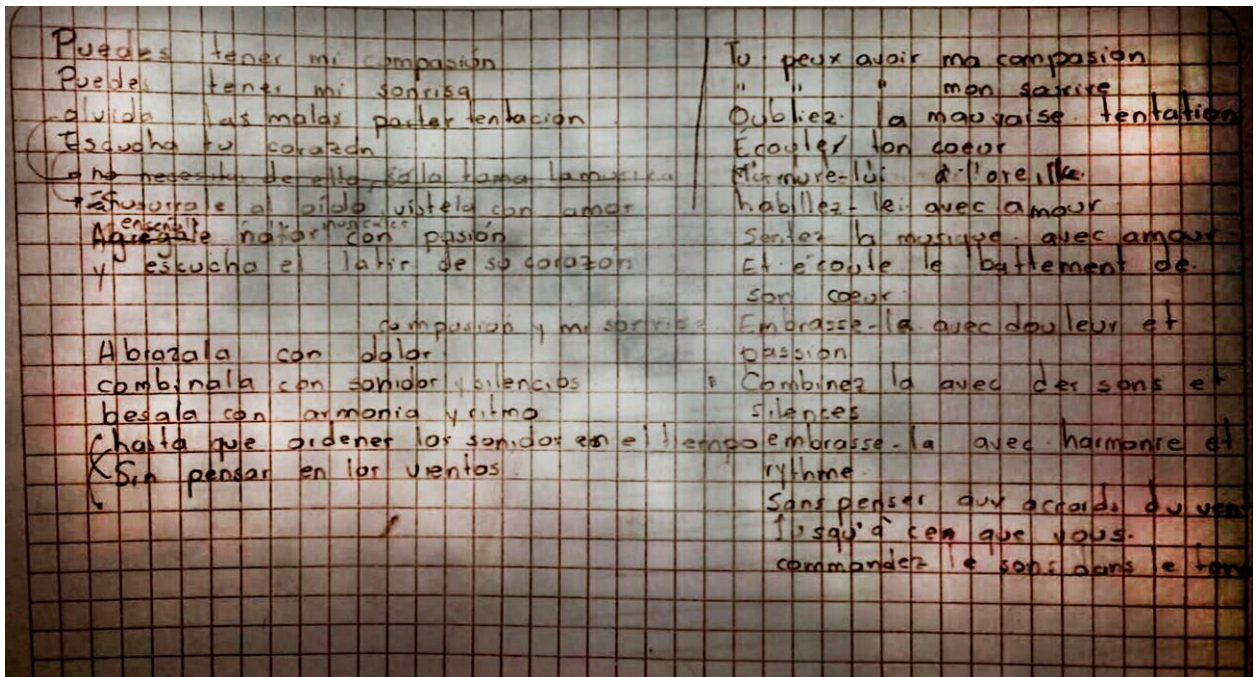 Puedes tener mi compasión
Puedes tener mi sonrisa
olvida las malas tentación
Escucha tu corazón
no necesitas de ella, solo toma la musica
susurrale al oido, vistela con amor
enseñale musicales
Agregale notas con pasión
y escucha el latir de su corazon
compasion y mi sonrisa
Abrazala con dolor
combinala con sonidos y silencios
besala con armonia y ritmo
hasta que ordenes los sonidos en el tiempo
Sin pensar en los vientos.
Tu peux avoir ma compasion
" " " mon sourire
Oubliez la mauvaise tentation
Écouter ton coeur
Murmure-lui à l'oreille
habillez-lei avec amour
Sentez la musique avec amour
Et écoute le battement de
son coeur
Embrasse-la avec douleur et
passion
Combinez la avec des sons et
silences
embrasse-la avec harmonie et
rythme
Sans penser aux accords du
Jusqu'à cen que vous
commandez le sons dans le